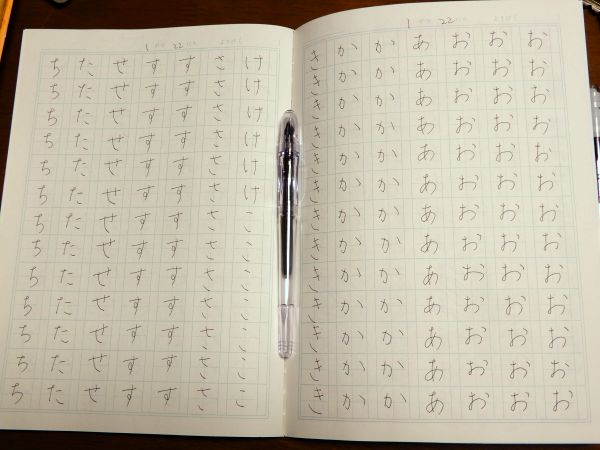 1 22
おおおおおおおおおおおおお
おおおおおおおおおおおおお
おおおおおおおおおおおおお
あああああああああああああ
かかかかかかかかかかかかか
かかかかかかかかかかかかか
ききききききききききききき
1 22
けけけけけけこここここここ
さささささささささささささ
すすすすすすすすすすすすす
すすすすすすすすすすすすす
せせせせせせせせせせせせせ
たたたたたたたたたたたたた
ちちちちちちちちちちちちち